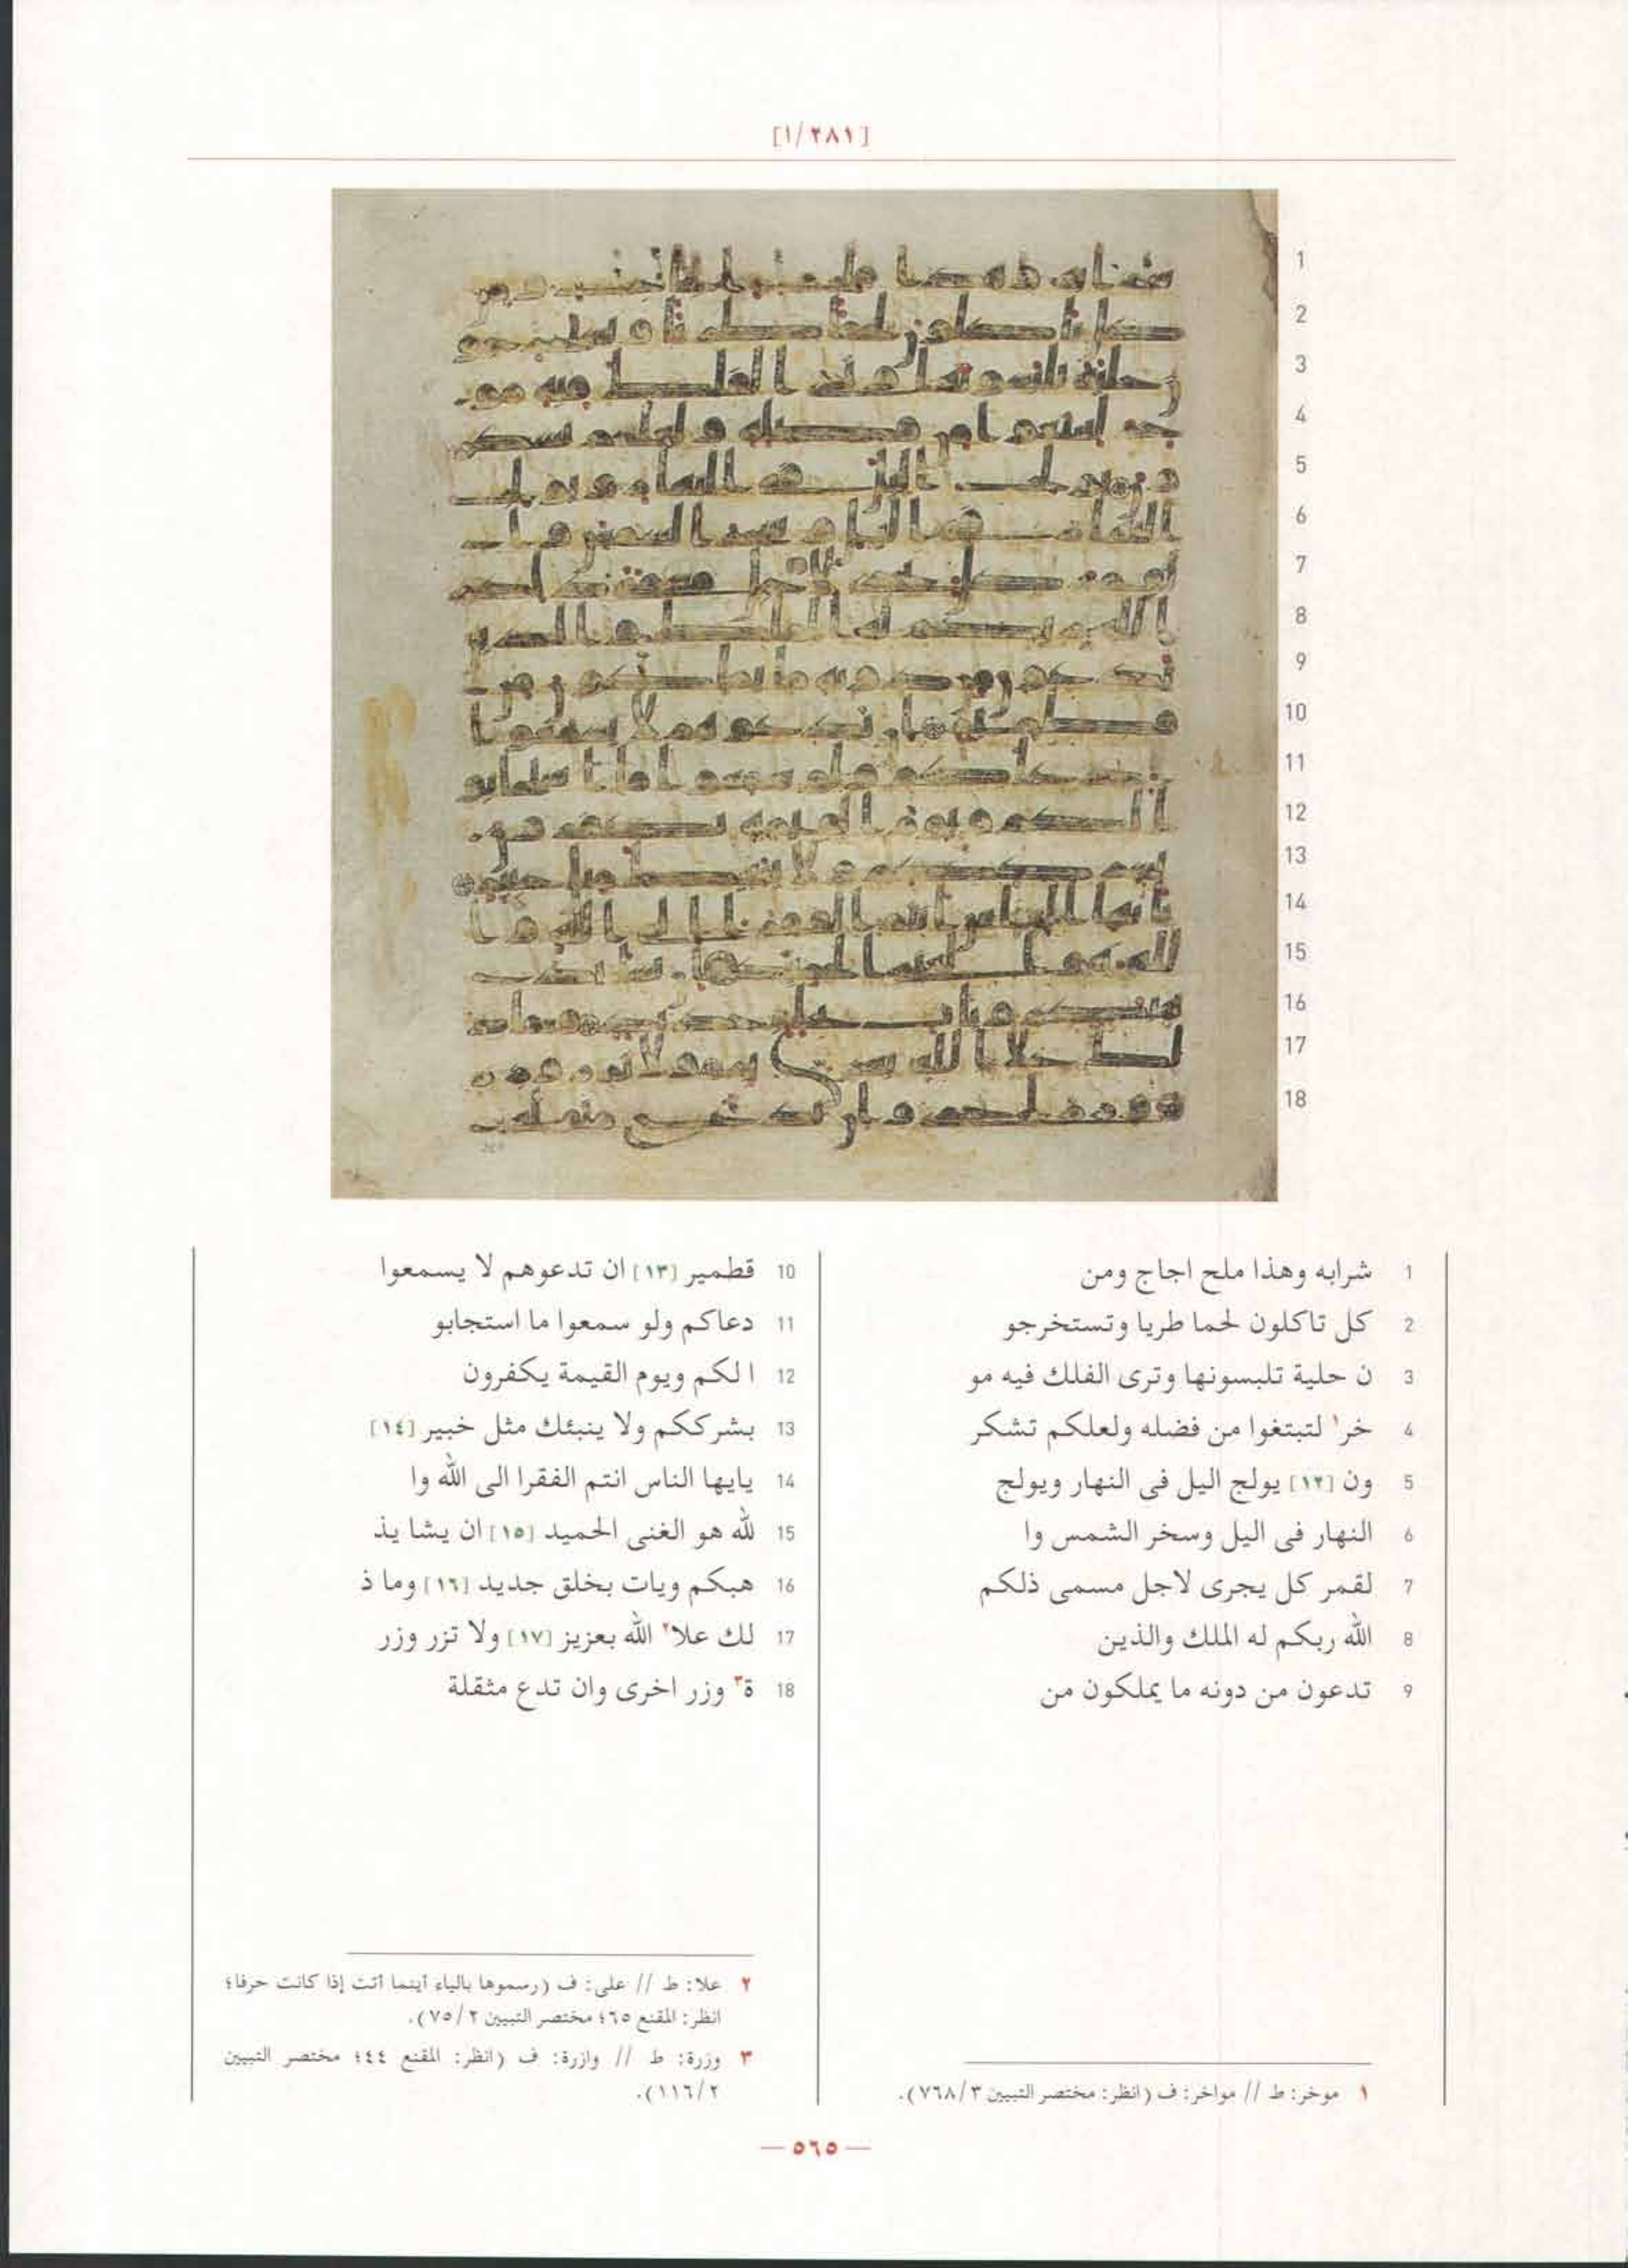 [١/٢٨١]
1 شرابه وهذا ملح اجاج ومن
2 كل تاكلون لحما طريا وتستخرجو
3 ن حلية تلبسونها وترى الفلك فيه مو
4 خر١ لتبتغوا من فضله ولعلكم تشكر
5 ون [١٢] يولج اليل فى النهار ويولج
6 النهار فى اليل وسخر الشمس وا
7 لقمر كل يجرى لاجل مسمى ذلكم
8 الله ربكم له الملك والذين
9 تدعون من دونه ما يملكون من
10 قطمير [١٣] ان تدعوهم لا يسمعوا
11 دعاكم ولو سمعوا ما استجابو
12 ا لكم ويوم القيمة يكفرون
13 بشرككم ولا ينبئك مثل خبير [١٤]
14 يايها الناس انتم الفقرا الى الله وا
15 لله هو الغنى الحميد [١٥] ان يشا يذ
16 هبكم ويات بخلق جديد [١٦] وما ذ
17 لك علا٢ الله بعزيز [١٧] ولا تزر وزر
18 ة٣ وزر اخرى وان تدع مثقلة
١ موخر: ط // مواخر: ف (انظر: مختصر التبيين ٣/٧٦٨).
٢ علا: ط // على: ف (رسموها بالياء أينما أتت إذا كانت حرفا؛
انظر: المقنع ٦٥؛ مختصر التبيين ٢/٧٥).
٣ وزرة: ط // وازرة: ف (انظر: المقنع ٤٤؛ مختصر التبيين
٢/١١٦).
— ٥٦٥ —